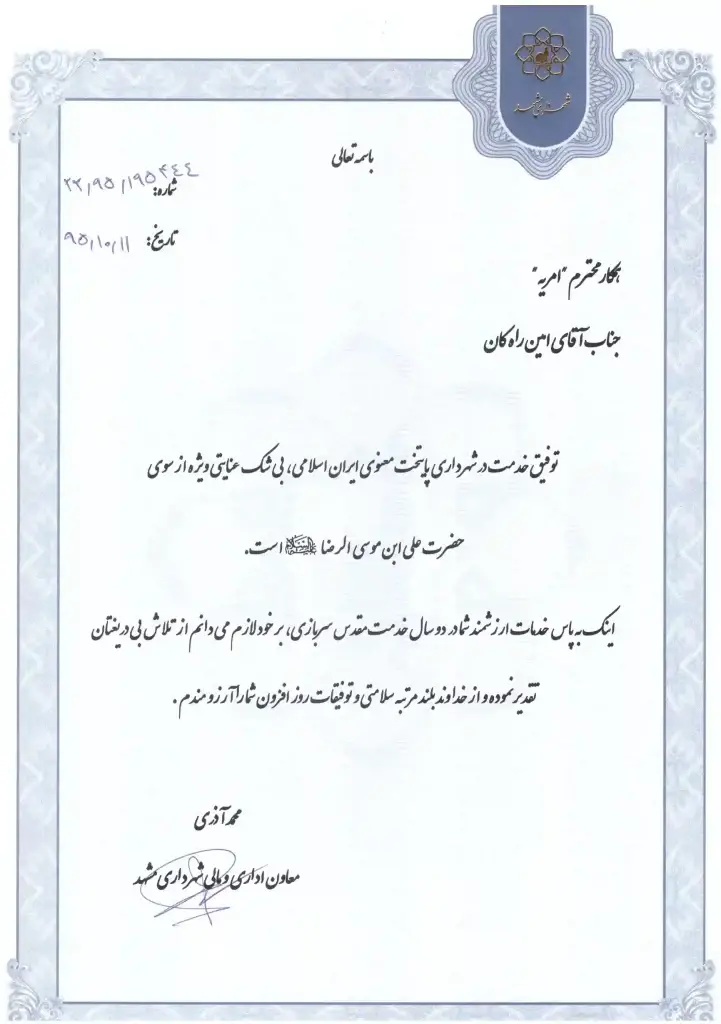 شهرداری مشهد
باسمه تعالی
شماره: ۲۲٫۹۵/۱۹۵۴۴۴
تاریخ: ۹۵٫۱۰٫۱۱
همکار محترم "امریه"
جناب آقای امین راه کان
توفیق خدمت در شهرداری پایتخت معنوی ایران اسلامی، بی شک عنایتی ویژه از سوی
حضرت علی ابن موسی الرضا علیه‌السلام است.
اینک به پاس خدمات ارزشمند شما در دو سال خدمت مقدس سربازی، بر خود لازم می دانم از تلاش بی دریغتان
تقدیر نموده و از خداوند بلند مرتبه سلامتی و توفیقات روز افزون شما را آرزومندم.
محمد آذری
معاون اداری و مالی شهرداری مشهد